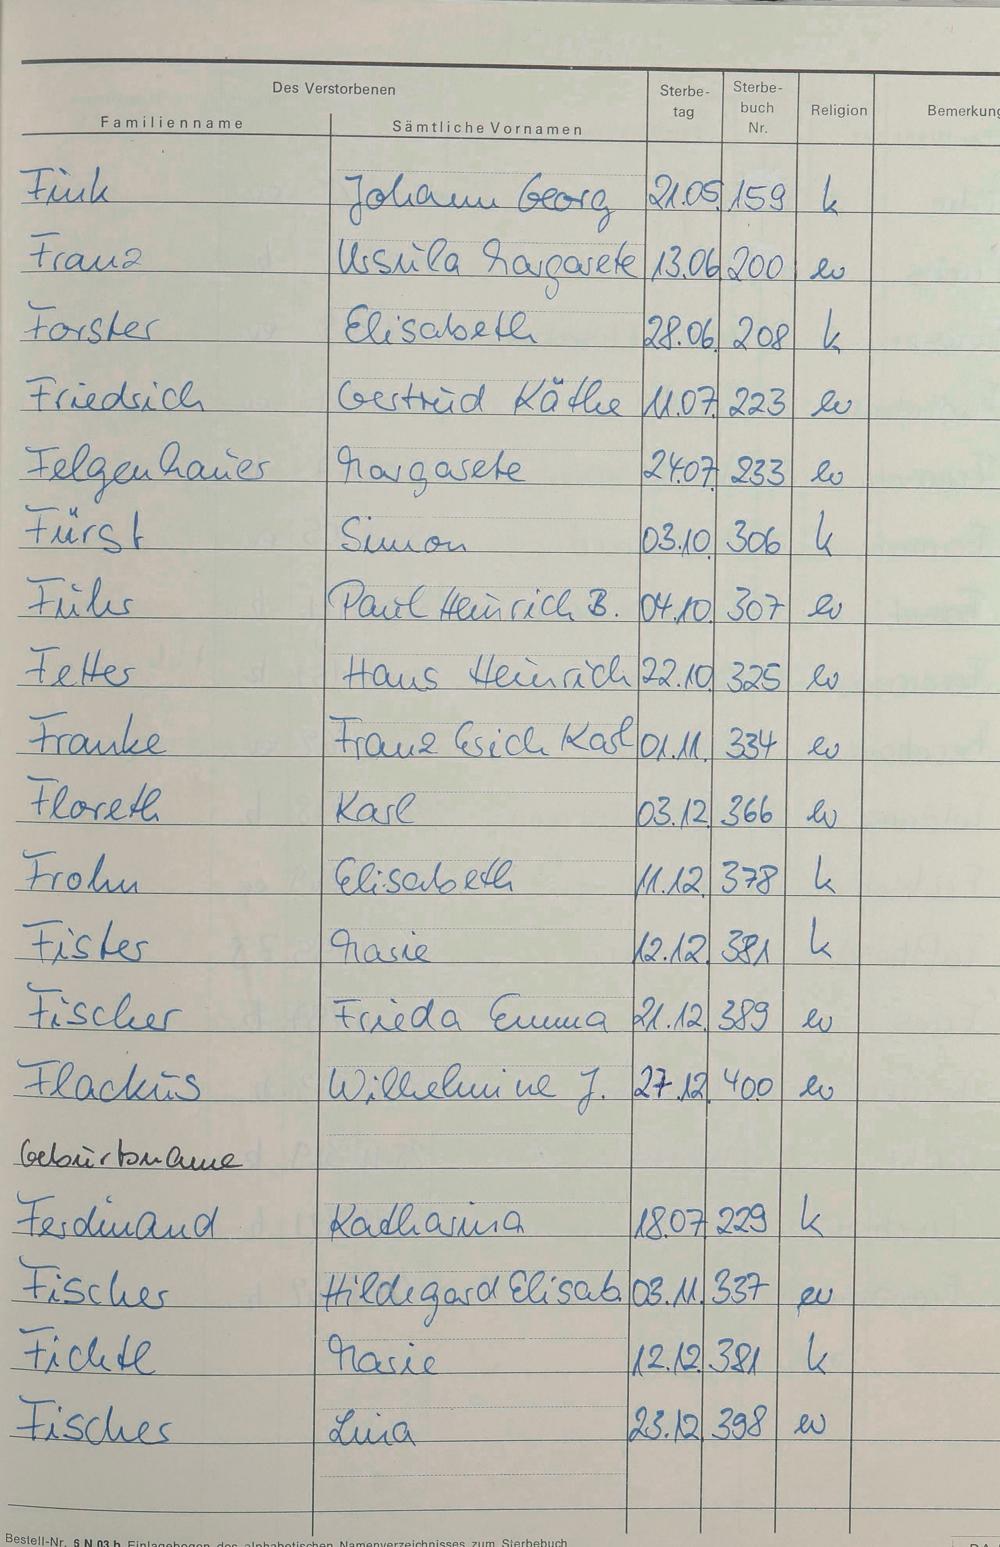 Des Verstorbenen
Familienname Sämtliche Vornamen Sterbe-tag Sterbe-buch Nr. Religion Bemerkung
Fink Johann Georg 21.05 159 k
Franz Ursula Margarete 13.06 200 ev
Forster Elisabeth 28.06. 208 k
Friedrich Gertrud Käthe 11.07. 223 ev
Felgenhauer Margarete 24.07. 233 ev
Fürst Simon 03.10. 306 k
Führ Paul Heinrich B. 04.10. 307 ev
Fetter Hans Heinrich 22.10. 325 ev
Franke Franz Erich Karl 01.11. 334 ev
Floreth Karl 03.12. 366 ev
Frohn Elisabeth 11.12. 378 k
Fister Marie 12.12. 381 k
Fischer Frieda Emma 21.12. 389 ev
Flackus Wilhelmine J. 27.12. 400 ev
Geburtsname
Ferdinand Katharina 18.07 229 k
Fischer Hildegard Elisab. 03.11. 337 ev
Fichtl Marie 12.12. 381 k
Fischer Luia 23.12. 398 ev
Bestell-Nr. S N 03 b Einlagebogen des alphabetischen Namenverzeichnisses zum Sterbebuch